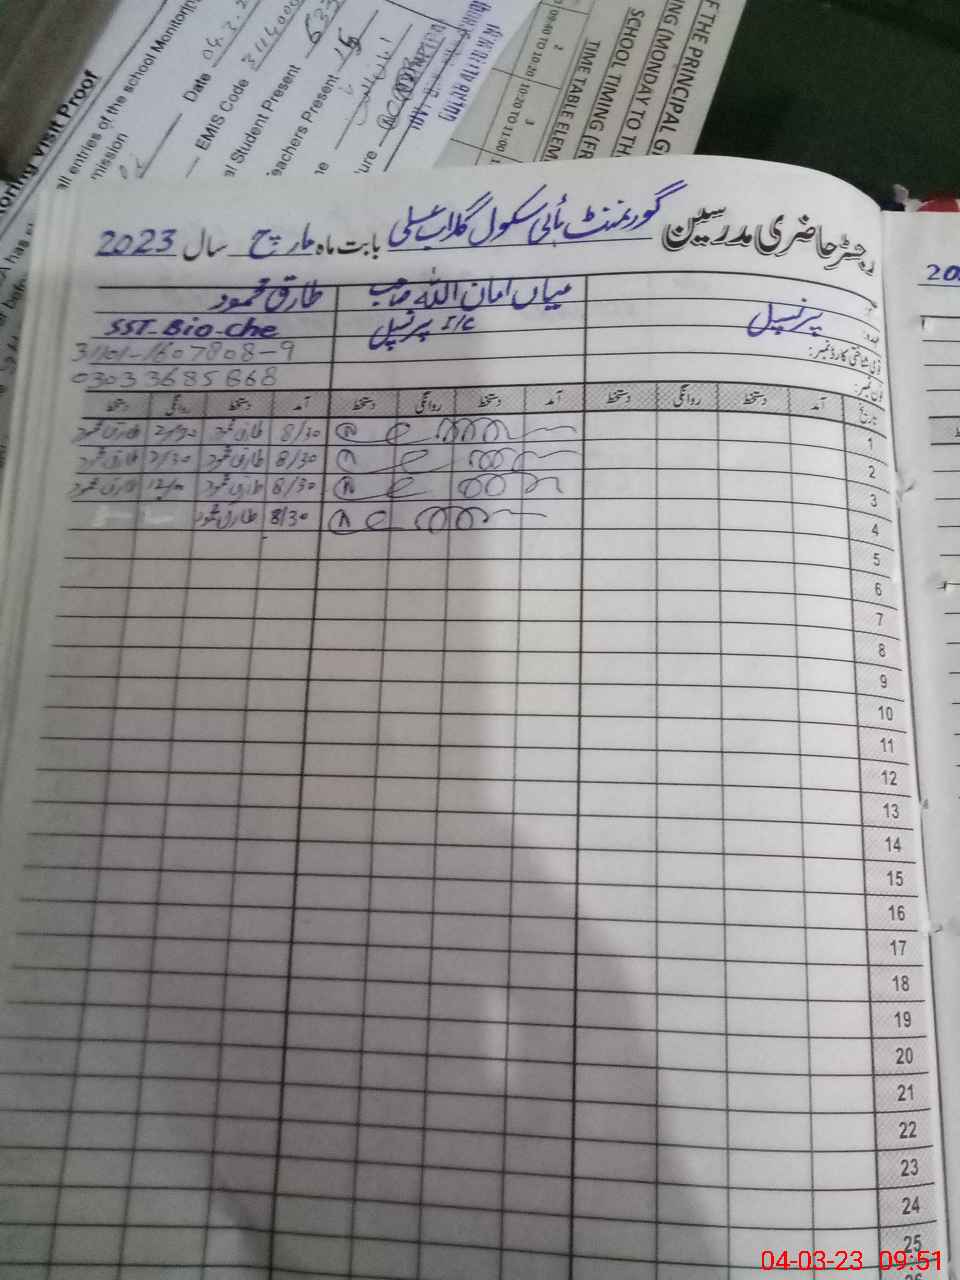 Date 04.3.2
EMIS Code
Student Present 633
Teachers Present 15
all entries of the school Monitoring
mission
Visit Proof
F THE PRINCIPAL G
NG (MONDAY TO TH
SCHOOL TIMING (FR
TIME TABLE ELEM
09:40 TO 10:20
10:20 TO 11:00
2
3
رجسٹر حاضری مدرسین گورنمنٹ ہائی سکول گلاب علی بابت ماہ مارچ سال 2023
میاں امان اللہ صاحب طارق محمود
پرنسپل I/C پرنسپل SST-Bio-Che
31101-1607808-9
0303 3685668
تاریخ آمد دستخط روانگی دستخط آمد دستخط روانگی دستخط آمد دستخط روانگی دستخط
1 8/30 طارق محمود طارق محمود
2 8/30 طارق محمود طارق محمود
3 8/30 طارق محمود طارق محمود
4 8/30 طارق محمود
5
6
7
8
9
10
11
12
13
14
15
16
17
18
19
20
21
22
23
24
25
04-03-23 09:51